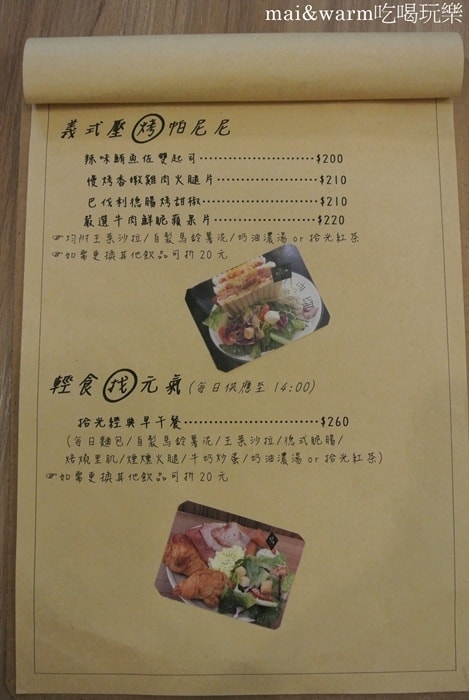 mai&warm吃喝玩樂
義式壓烤帕尼尼
辣味鮪魚佐雙起司 $200
慢烤香嫩雞肉火腿片 $210
巴伐利德腸烤甜椒 $210
嚴選牛肉鮮脆蘋果片 $220
☞均附生菜沙拉/自製馬鈴薯泥/奶油濃湯 or 拾光紅茶
☞如需更換其他飲品可折20元
輕食找元氣(每日供應至 14:00)
拾光經典早午餐 $260
(每日麵包/自製馬鈴薯泥/生菜沙拉/德式脆腸/
烤燒里肌/煙燻火腿/牛奶炒蛋/奶油濃湯 or 拾光紅茶)
☞如需更換其他飲品可折20元